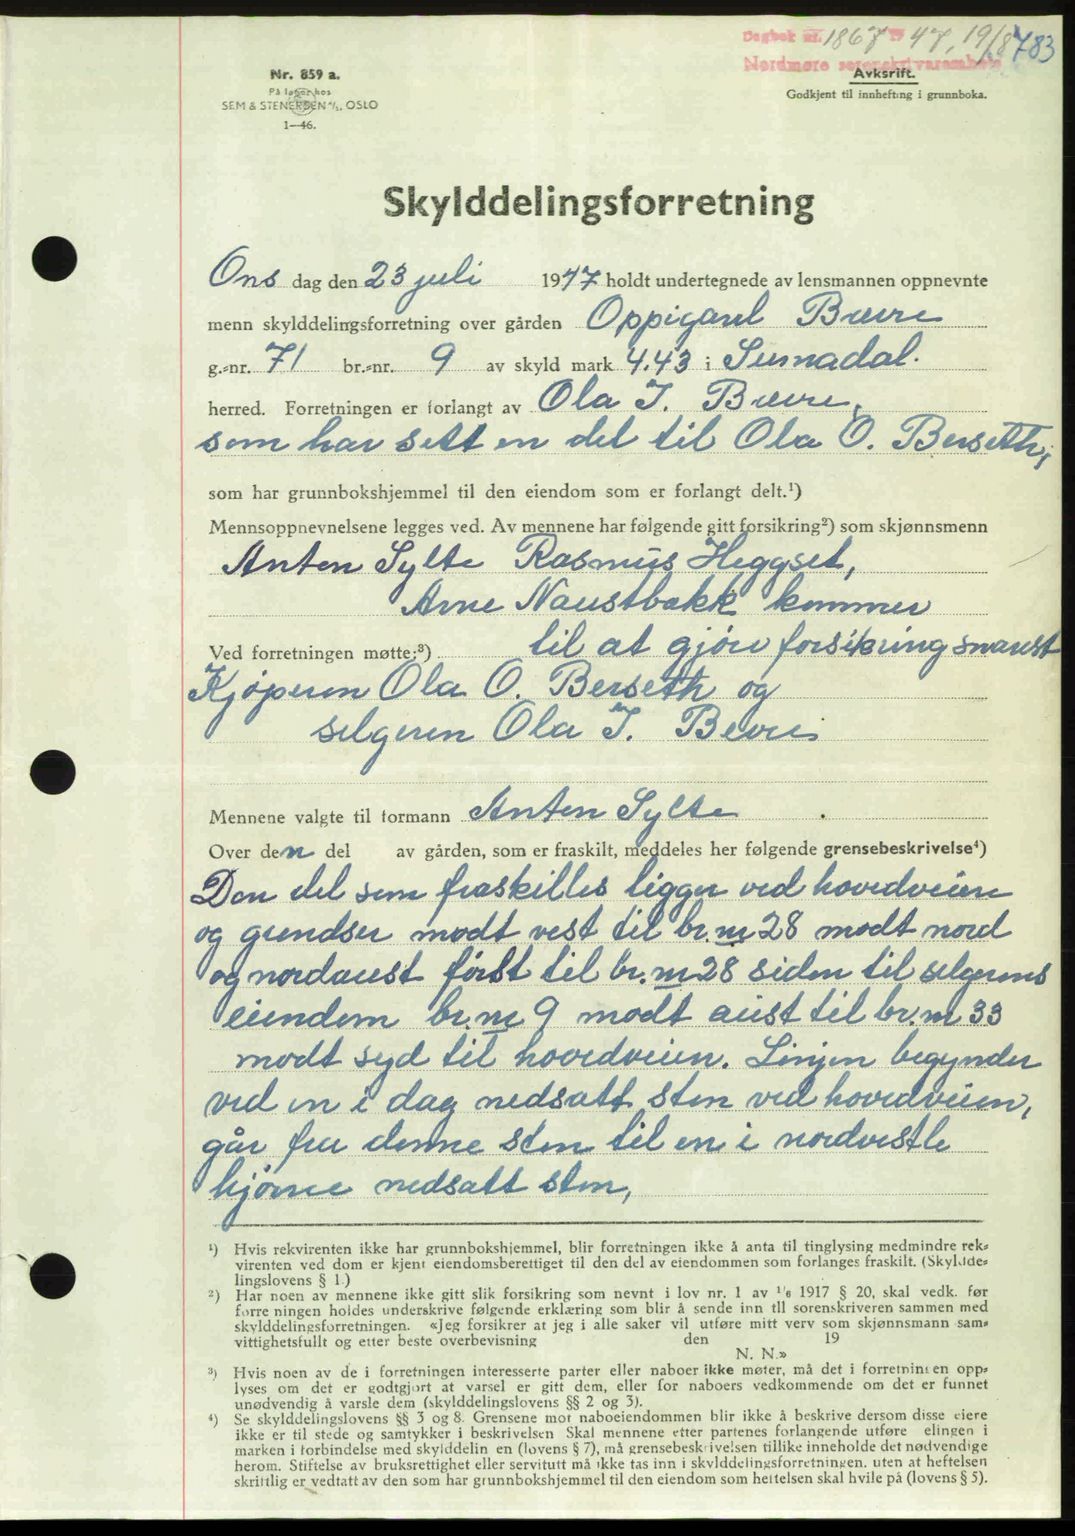 Dagbok nr. 1867 19 47, 19/8 783
Nordmøre sorenskriverembete
Nr. 859 a.
På lager hos
SEM & STENERSEN A/S, OSLO
1—46.
Avksrift.
Godkjent til innhefting i grunnboka.
Skylddelingsforretning
Ons dag den 23 juli 1947 holdt undertegnede av lensmannen oppnevnte
menn skylddelingsforretning over gården Oppigard Bævre
g.-nr. 71 br.-nr. 9 av skyld mark 4.43 i Surnadal.
herred. Forretningen er forlangt av Ola J. Bævre,
som har selt en del til Ola O. Berseth,
som har grunnbokshjemmel til den eiendom som er forlangt delt.¹)
Mennsoppnevnelsene legges ved. Av mennene har følgende gitt forsikring²) som skjønnsmenn
Anton Sylte Rasmus Heggset,
Arne Naustbakk kommer
til at gjöre forsikring snarest
Ved forretningen møtte:³)
Kjøperen Ola O. Berseth og
selgeren Ola J. Bævre
Mennene valgte til formann Anton Sylte
Over den del av gården, som er fraskilt, meddeles her følgende grensebeskrivelse⁴)
Den del som fraskilles ligger ved hovedveien
og grendser modt vest til br.nr 28 modt nord
og nordaust först til br.nr 28 siden til selgerens
eiendom br.nr 9 modt aust til br.nr 33
modt syd til hovedveien. Linjen begynder
ved en i dag nedsatt sten ved hovedveien,
går fra denne sten til en i nordvestle
hjörne nedsatt sten,
¹) Hvis rekvirenten ikke har grunnbokshjemmel, blir forretningen ikke å anta til tinglysing medmindre rek-
virenten ved dom er kjent eiendomsberettiget til den del av eiendommen som forlanges fraskilt. (Skyldde-
lingslovens § 1.)
²) Har noen av mennene ikke gitt slik forsikring som nevnt i lov nr. 1 av 1/6 1917 § 20, skal vedk. før
forretningen holdes underskrive følgende erklæring som blir å sende inn til sorenskriveren sammen med
skylddelingsforretningen. «Jeg forsikrer at jeg i alle saker vil utføre mitt verv som skjønnsmann sam-
vittighetsfullt og etter beste overbevisning den 19
N. N.»
³) Hvis noen av de i forretningen interesserte parter eller naboer ikke møter, må det i forretningen opp-
lyses om det er godtgjort at varsel er gitt dem, eller for naboers vedkommende om det er funnet
unødvendig å varsle dem (skylddelingslovens §§ 2 og 3).
⁴) Se skylddelingslovens §§ 3 og 8. Grensene mot naboeiendommen blir ikke å beskrive dersom disse eiere
ikke er til stede og samtykker i beskrivelsen Skal mennene etter partenes forlangende utføre delingen i
marken i forbindelse med skylddelingen (lovens § 7), må grensebeskrivelsen tillike inneholde det nødvendige
herom. Stiftelse av bruksrettighet eller servitutt må ikke tas inn i skylddelingsforretningen, uten at heftelsen
skriftlig er vedtatt av den som har grunnbokshjemmel til den eiendom som heftelsen skal hvile på (lovens § 5).